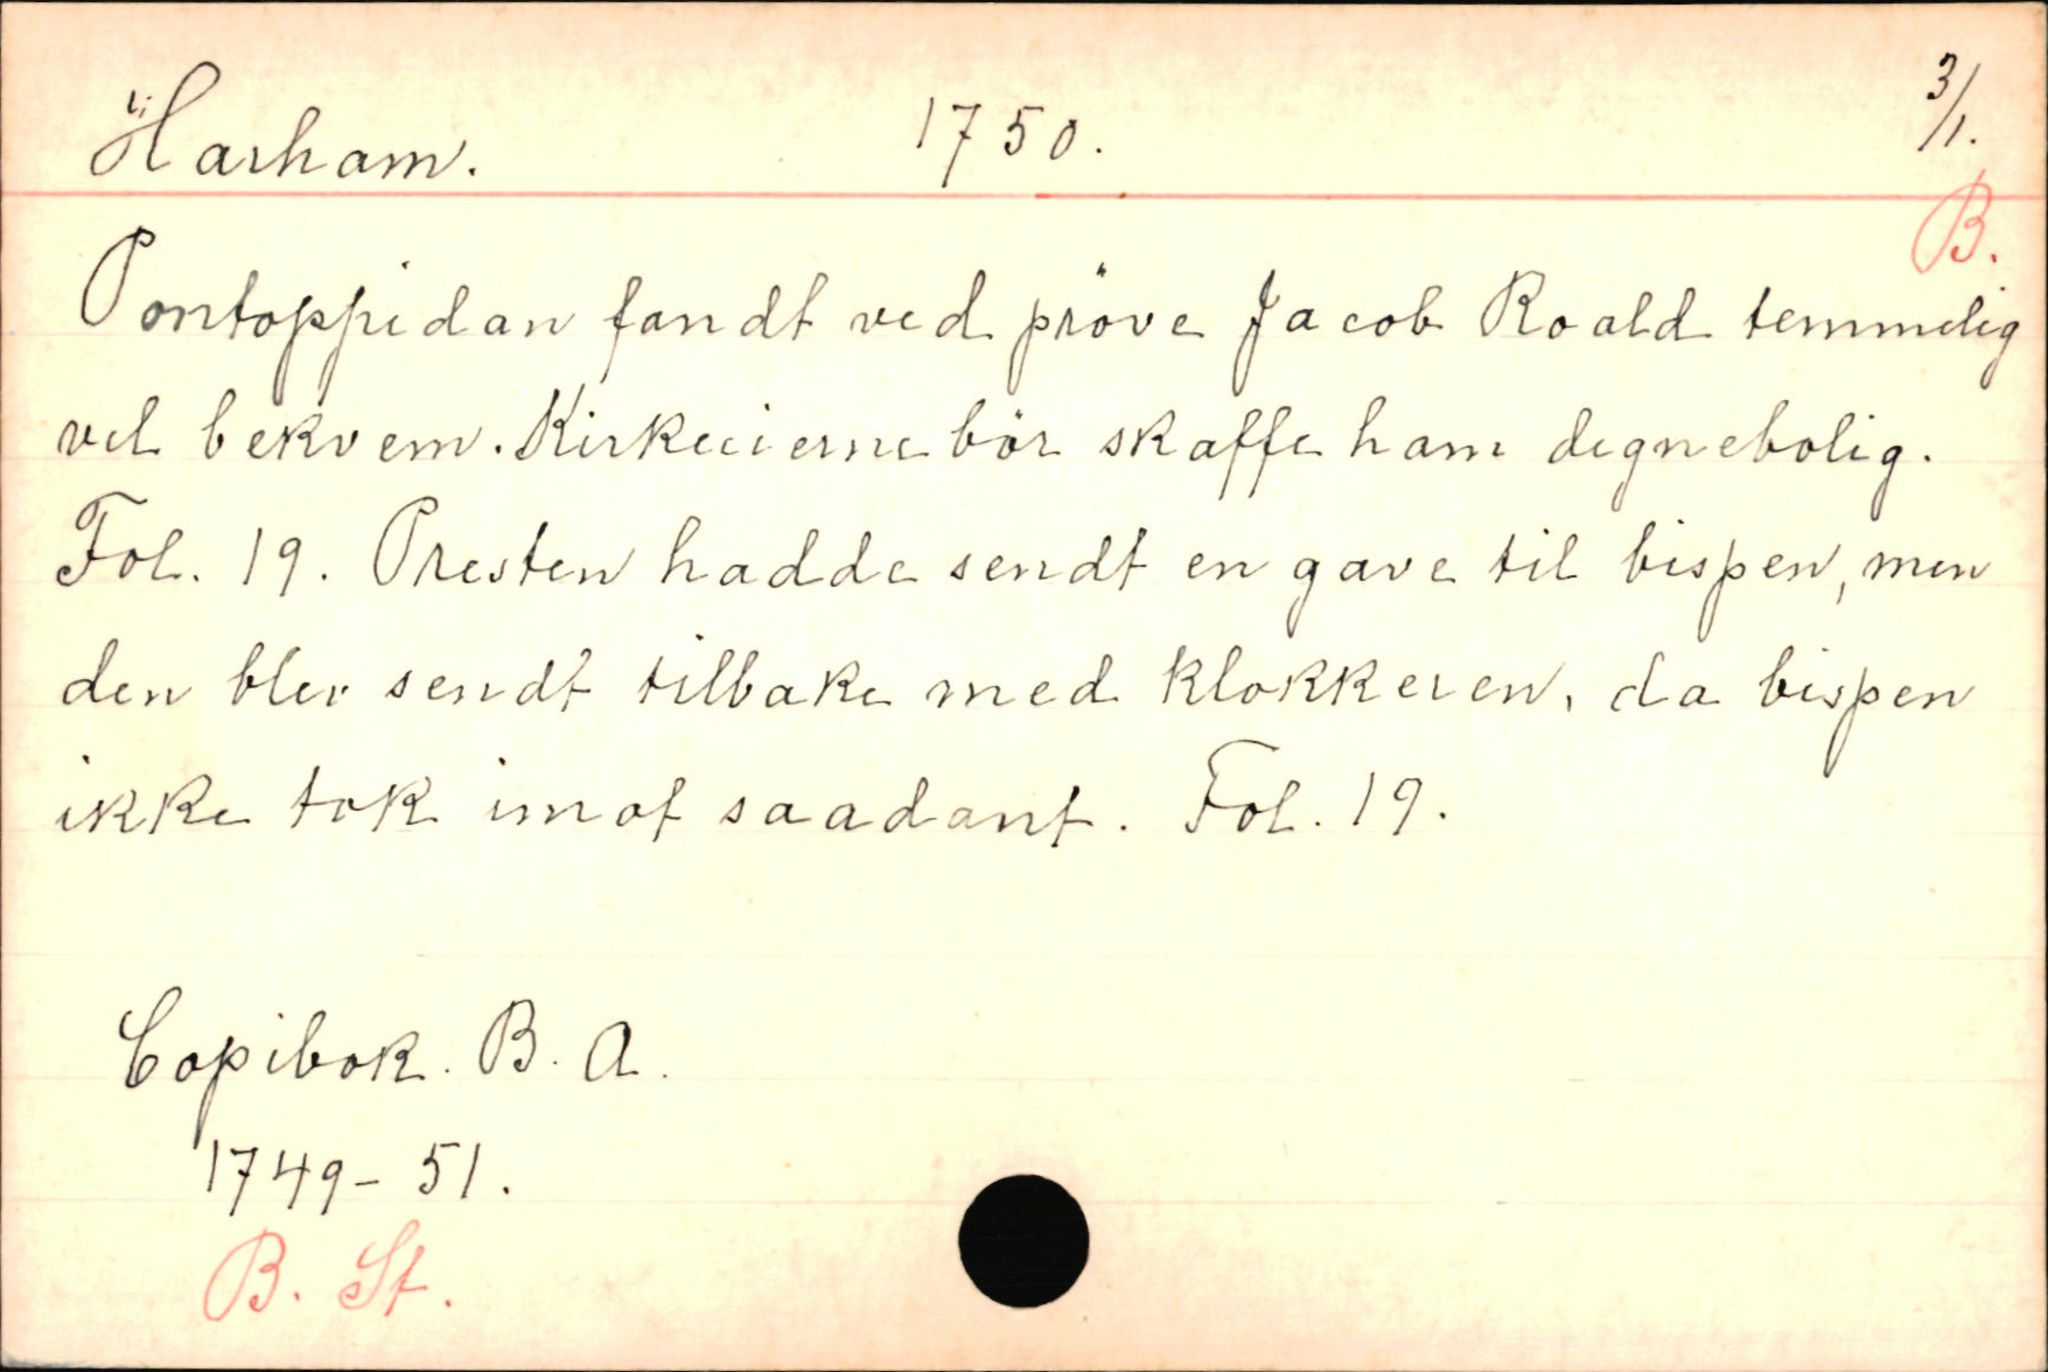 Harham. 1750. 3/1.
B.
Pontoppidan fandt ved pröve Jacob Roald temmelig
vel bekvem. Kirkeeierne bör skaffe ham degnebolig.
Fol. 19. Presten hadde sendt en gave til bispen, men
den blev sendt tilbake med klokkeren, da bispen
ikke tok imot saadant. Fol. 19.
Copibok. B. A.
1749-51.
B. St.